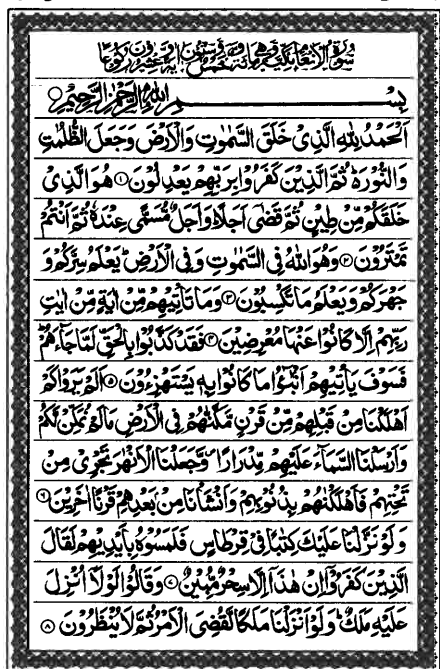 سورة الأنعام مكية وهي مائة وخمس وستون آية وعشرون ركوعا
بسم الله الرحمن الرحيم
اَلْحَمْدُ لِلّٰهِ الَّذِىْ خَلَقَ السَّمٰوٰتِ وَالْاَرْضَ وَجَعَلَ الظُّلُمٰتِ
وَالنُّوْرَ ؕ ثُمَّ الَّذِيْنَ كَفَرُوْا بِرَبِّهِمْ يَعْدِلُوْنَ ۝۱ هُوَ الَّذِىْ
خَلَقَكُمْ مِّنْ طِيْنٍ ثُمَّ قَضٰٓى اَجَلًا ؕ وَاَجَلٌ مُّسَمًّى عِنْدَهٗ ثُمَّ اَنْتُمْ
تَمْتَرُوْنَ ۝۲ وَهُوَ اللّٰهُ فِى السَّمٰوٰتِ وَفِى الْاَرْضِ ؕ يَعْلَمُ سِرَّكُمْ وَ
جَهْرَكُمْ وَيَعْلَمُ مَا تَكْسِبُوْنَ ۝۳ وَمَا تَاْتِيْهِمْ مِّنْ اٰيَةٍ مِّنْ اٰيٰتِ
رَبِّهِمْ اِلَّا كَانُوْا عَنْهَا مُعْرِضِيْنَ ۝۴ فَقَدْ كَذَّبُوْا بِالْحَقِّ لَمَّا جَآءَهُمْ ؕ
فَسَوْفَ يَاْتِيْهِمْ اَنْۢبٰٓؤُا مَا كَانُوْا بِهٖ يَسْتَهْزِءُوْنَ ۝۵ اَلَمْ يَرَوْا كَمْ
اَهْلَكْنَا مِنْ قَبْلِهِمْ مِّنْ قَرْنٍ مَّكَّنّٰهُمْ فِى الْاَرْضِ مَا لَمْ نُمَكِّنْ لَّكُمْ
وَاَرْسَلْنَا السَّمَآءَ عَلَيْهِمْ مِّدْرَارًا ۪ وَّجَعَلْنَا الْاَنْهٰرَ تَجْرِىْ مِنْ
تَحْتِهِمْ فَاَهْلَكْنٰهُمْ بِذُنُوْبِهِمْ وَاَنْشَاْنَا مِنْۢ بَعْدِهِمْ قَرْنًا اٰخَرِيْنَ ۝۶
وَلَوْ نَزَّلْنَا عَلَيْكَ كِتٰبًا فِىْ قِرْطَاسٍ فَلَمَسُوْهُ بِاَيْدِيْهِمْ لَقَالَ
الَّذِيْنَ كَفَرُوْٓا اِنْ هٰذَآ اِلَّا سِحْرٌ مُّبِيْنٌ ۝۷ وَقَالُوْا لَوْلَاۤ اُنْزِلَ
عَلَيْهِ مَلَكٌ ؕ وَلَوْ اَنْزَلْنَا مَلَكًا لَّقُضِىَ الْاَمْرُ ثُمَّ لَا يُنْظَرُوْنَ ۝۸